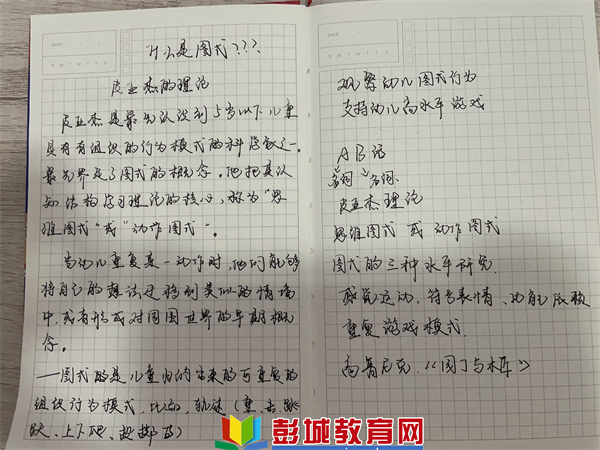 什么是图式???
皮亚杰的理论
皮亚杰是最先认识到5岁以下儿童
具有有组织的行为模式的科学家之一。
最先界定了图式的概念。他把其认
知结构学习理论的核心,称为“思
维图式”或“动作图式”。
当幼儿重复某一动作时,他们能够
将自己的想法迁移到类似的情境
中,或者形成对周围世界的早期概
念。
—图式的是儿童的
组织行为模式,比如,轨迹(
、上下爬、投掷等)
DATE
观察幼儿图式行为
支持幼儿高水平游戏
AB话
名词 名词
皮亚杰理论
思维图式 或 动作图式
图式的三种水平研究
感觉运动、符号表情、功能
重复游戏模式
《园丁与木匠》
彭城教育网